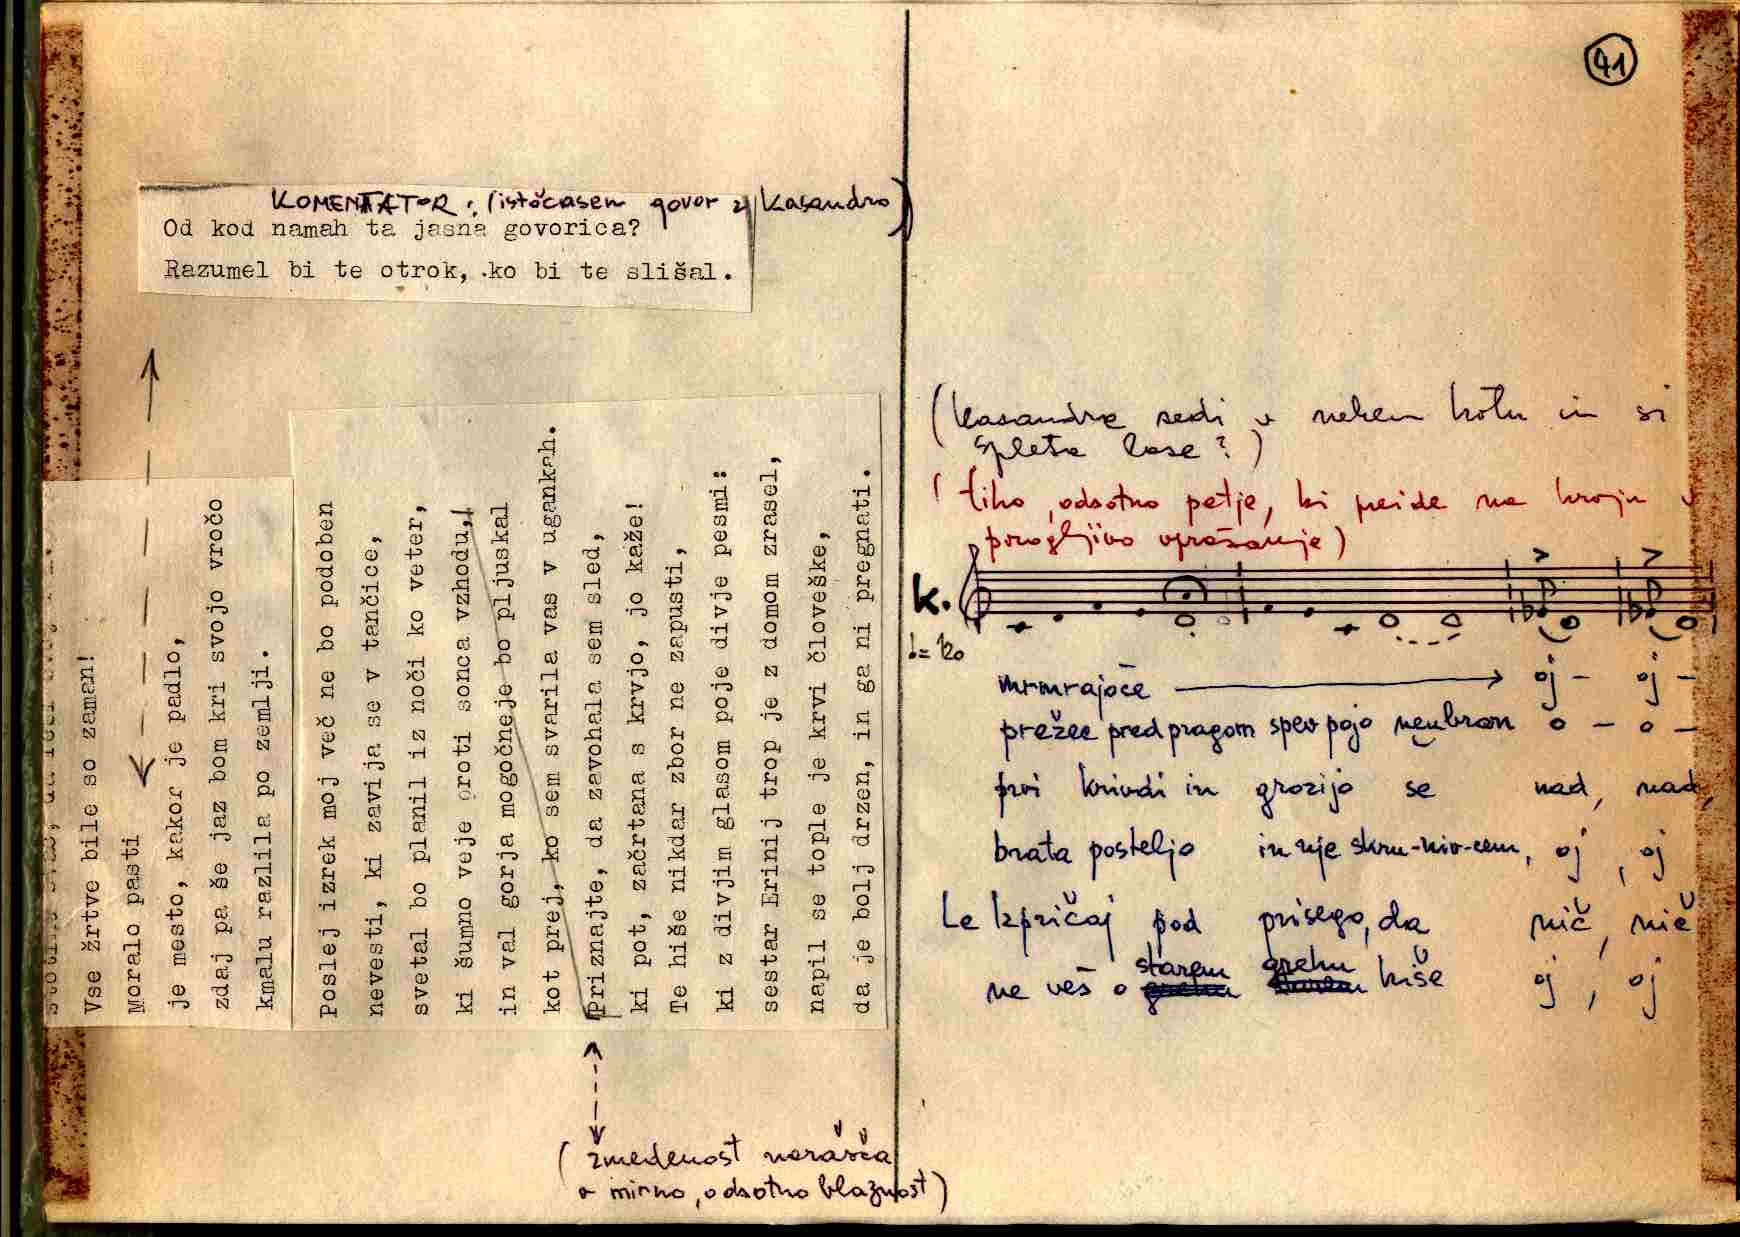 41
KOMENTATOR: (istočasem govor z Kasandro)
Od kod namah ta jasna govorica?
Razumel bi te otrok, ko bi te slišal.
Vse žrtve bile so zaman!
Moralo pasti
je mesto, kakor je padlo,
zdaj pa še jaz bom kri svojo vročo
kmalu razlila po zemlji.
Poslej izrek moj več ne bo podoben
nevesti, ki zavija se v tančice,
svetal bo planil iz noči ko veter,
ki šumno veje proti sonca vzhodu,
in val gorja mogočneje bo pljuskal
kot prej, ko sem svarila vas v ugankah.
Priznajte, da zavohala sem sled,
ki pot, začrtana s krvjo, jo kaže!
Te hiše nikdar zbor ne zapusti,
ki z divjim glasom poje divje pesmi:
sestar Erinij trop je z domom zrasel,
napil se tople je krvi človeške,
da je bolj drzen, in ga ni pregnati.
(zmedenost narašča
v mirno, odsotno blaznost)
(Kasandra sedi v nekem kotu in si
spleta lase?)
(tiho, odsotno petje, ki preide na kraju v
porogljivo vprašanje)
K.
♩= 120
mrmrajoče oj - oj -
prežee pred pragom spev pojo neubran o - o -
prvi krivdi in grozijo se nad, nad,
brata posteljo in nje skru-niv-cem, oj, oj
Le izpričaj pod prisego, da nič, nič
starem grehu
ne veš o hiše oj, oj